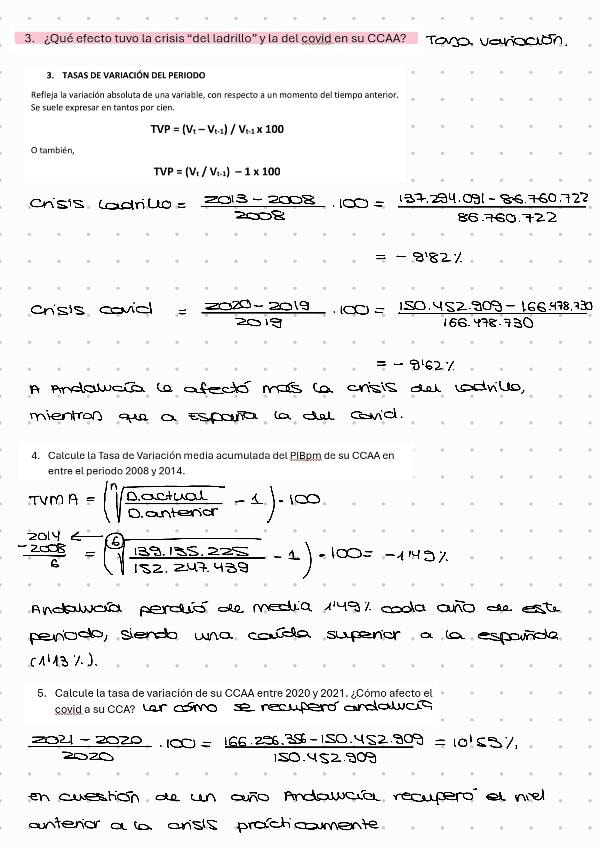 3. ¿Qué efecto tuvo la crisis “del ladrillo” y la del covid en su CCAA? Tasa variación.
3. TASAS DE VARIACIÓN DEL PERIODO
Refleja la variación absoluta de una variable, con respecto a un momento del tiempo anterior.
Se suele expresar en tantos por cien.
TVP = (Vt – Vt-1) / Vt-1 x 100
O también,
TVP = (Vt / Vt-1) – 1 x 100
Crisis Ladrillo = 2013 - 2008 / 2008 · 100 = 137.294.091 - 86.760.722 / 86.760.722
= - 9'82%
Crisis covid = 2020 - 2019 / 2019 · 100 = 150.452.909 - 166.478.730 / 166.478.730
= - 9'62%
A Andalucía le afectó más la crisis del ladrillo,
mientras que a España la del Covid.
4. Calcule la Tasa de Variación media acumulada del PIBpm de su CCAA en
entre el periodo 2008 y 2014.
TVMA = (ⁿ√ D.actual / D.anterior - 1) · 100
2014 - 2008 / 6 = (⁶√ 139.135.225 / 152.247.439 - 1) · 100 = -1'49%
Andalucía perdió de media 1'49% cada año de este
periodo, siendo una caída superior a la española
(1'13%).
5. Calcule la tasa de variación de su CCAA entre 2020 y 2021. ¿Cómo afecto el
covid a su CCA? Ler cómo se recuperó andalucía
2021 - 2020 / 2020 · 100 = 166.296.356 - 150.452.909 / 150.452.909 = 10'53%
En cuestión de un año Andalucía recuperó el niel
anterior a la crisis prácticamente.